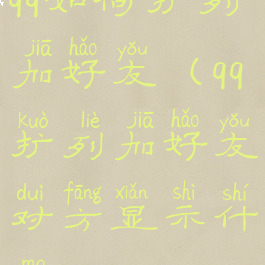 qq如何扩列
jiā hǎo yǒu
加好友(qq
kuò liè jiā hǎo yǒu
扩列加好友
duì fāng xiǎn shì shí
对方显示什
me